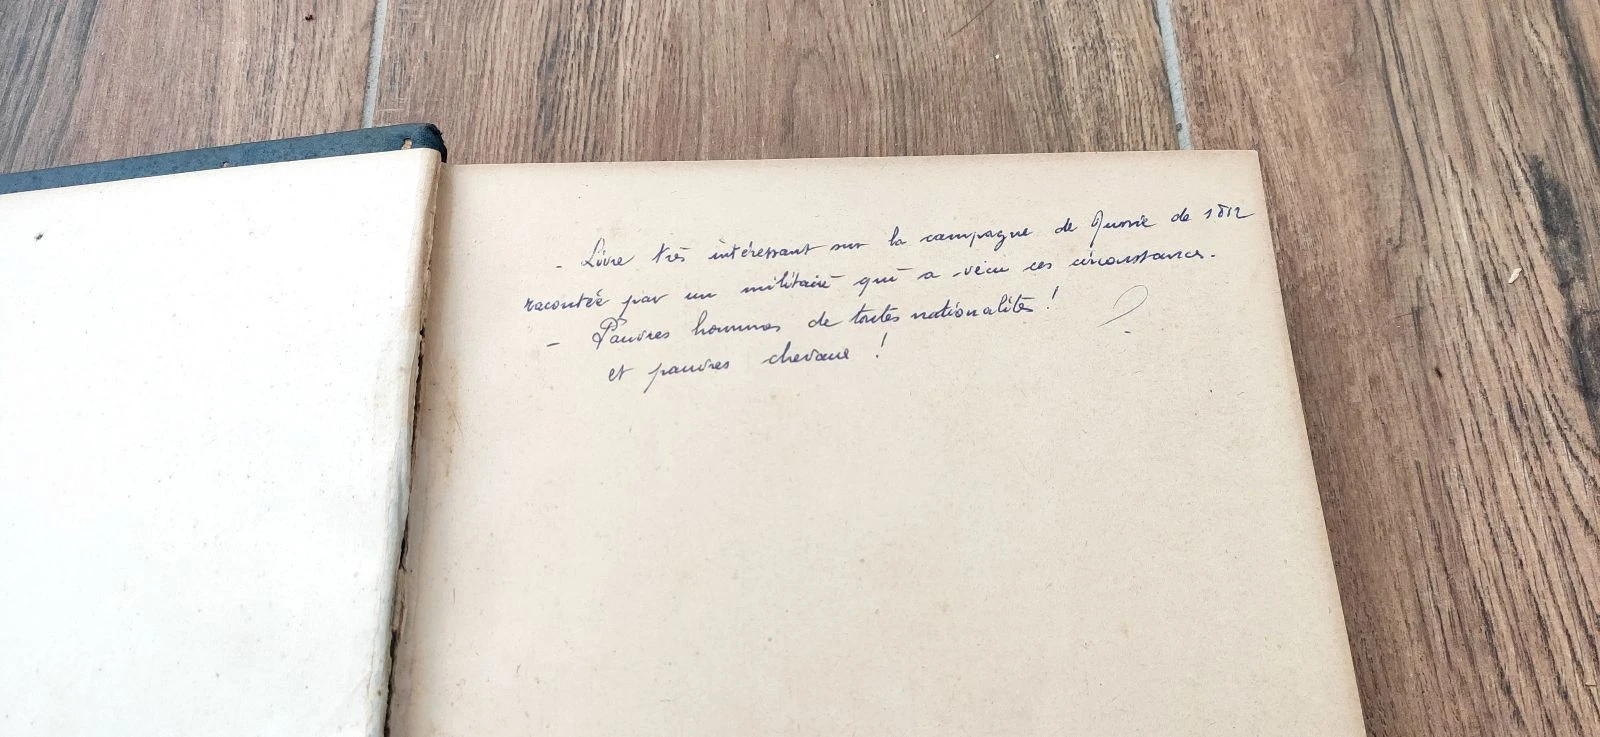 - Livre très intéressant sur la campagne de Russie de 1812
racontée par un militaire qui a vécu ces circonstances.
- Pauvres hommes de toutes nationalités !
et pauvres chevaux !
?